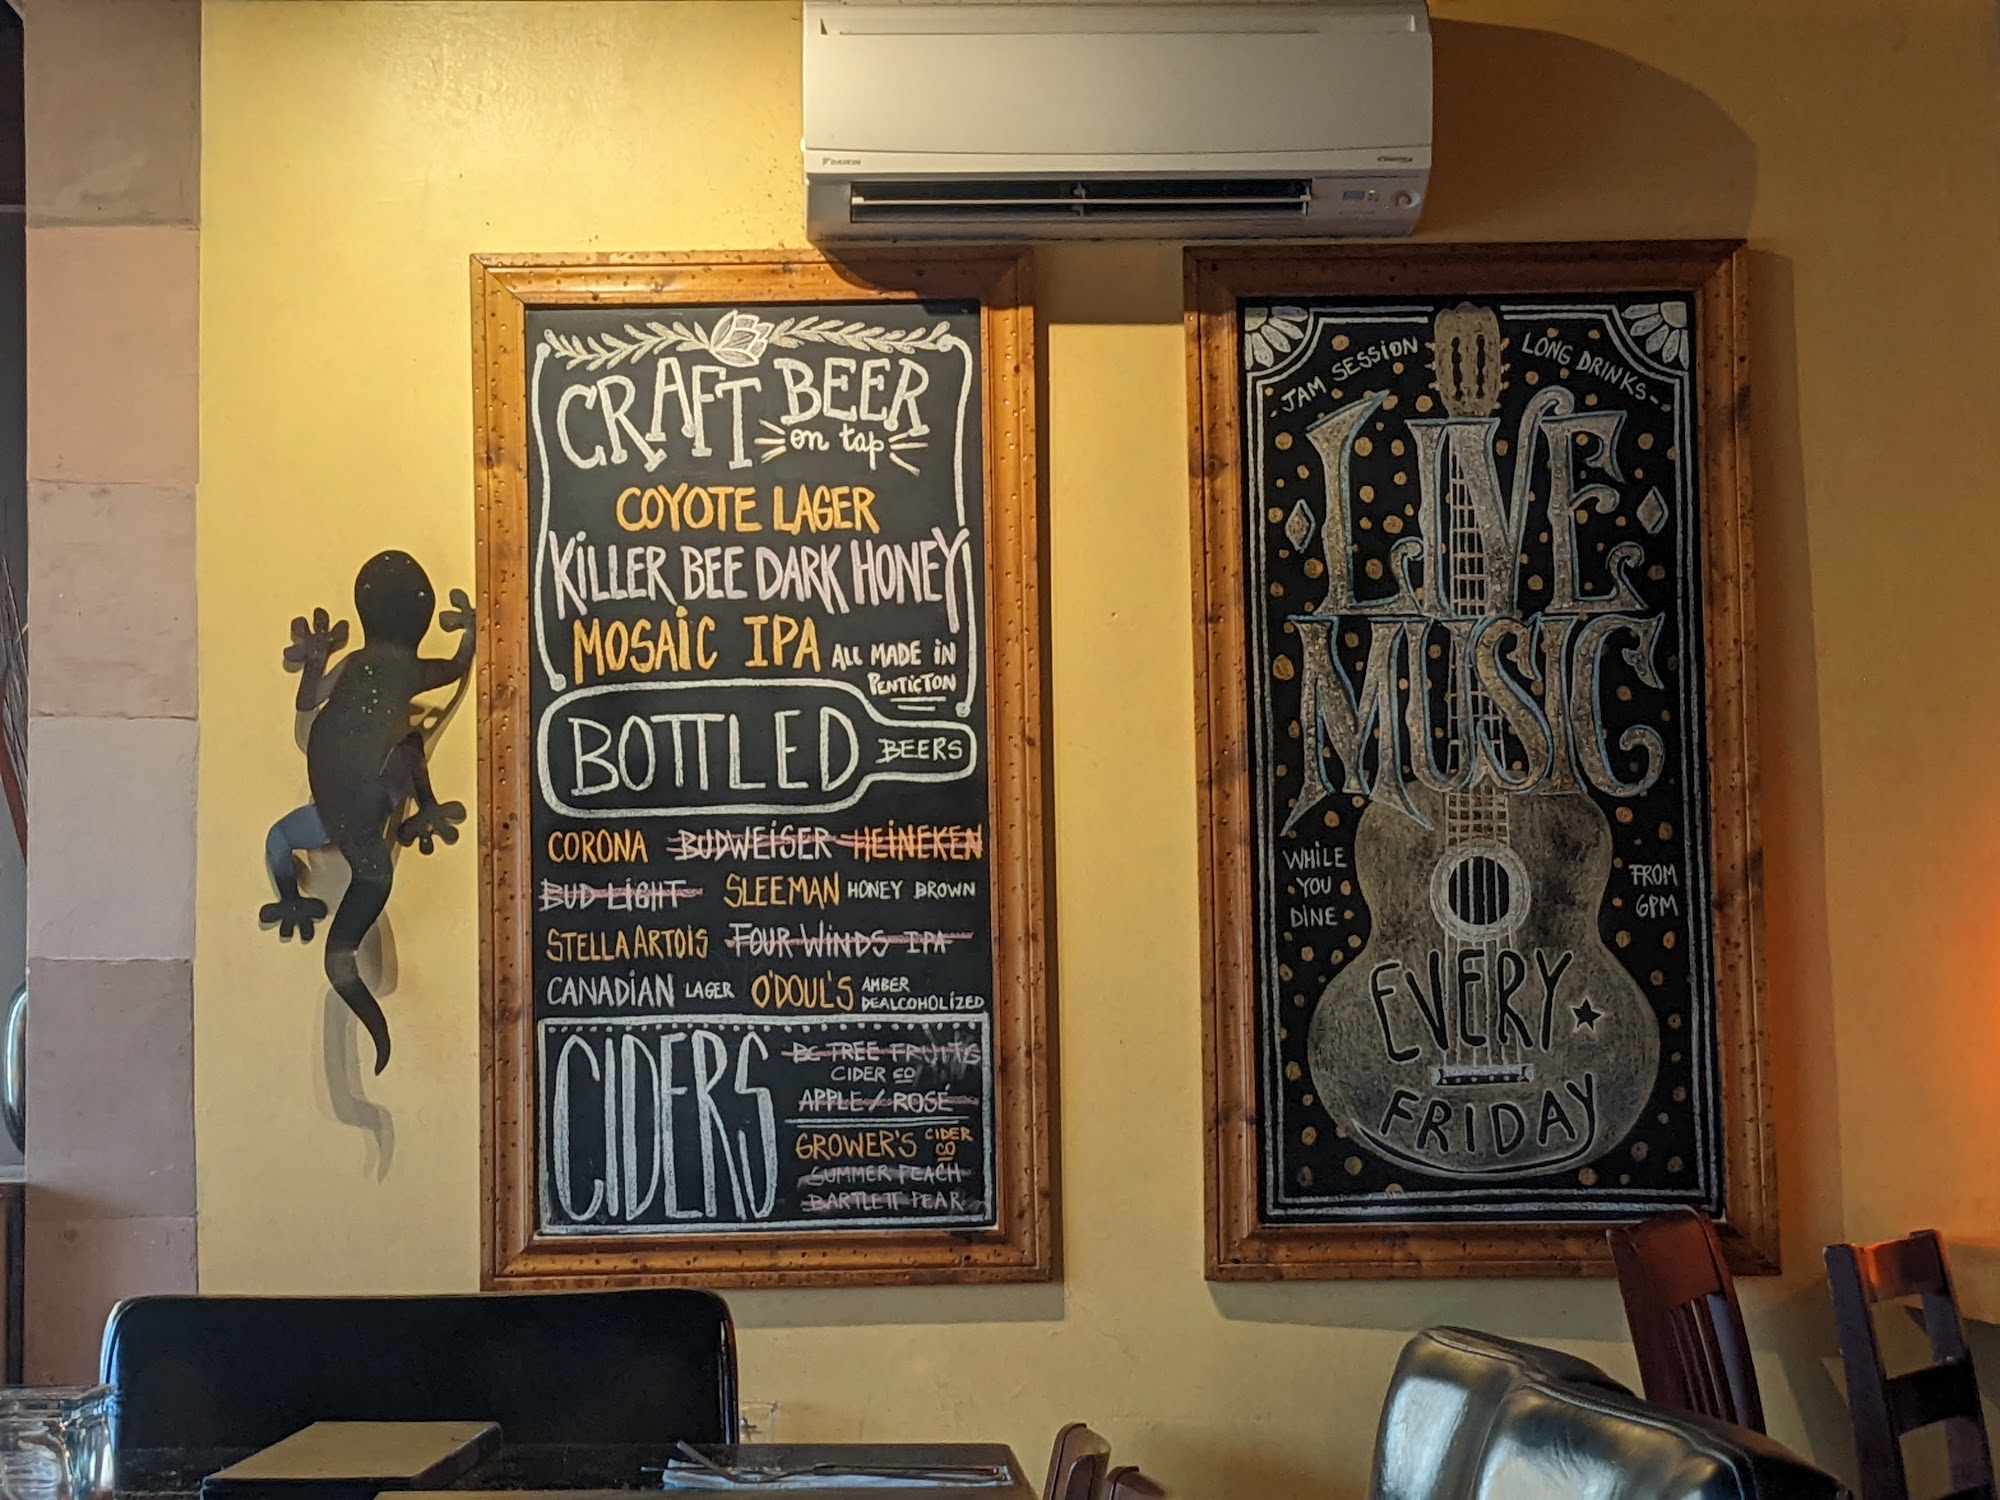 DAIKIN
CRAFT BEER
on tap
COYOTE LAGER
KILLER BEE DARK HONEY
MOSAIC IPA ALL MADE IN
PENTICTON
BOTTLED BEERS
CORONA BUDWEISER HEINEKEN
BUD LIGHT SLEEMAN HONEY BROWN
STELLA ARTOIS FOUR WINDS IPA
CANADIAN LAGER O'DOUL'S AMBER
DEALCOHOLIZED
CIDERS
BC TREE FRUITS
CIDER CO
APPLE / ROSÉ
GROWER'S CIDER CO
SUMMER PEACH
BARTLETT PEAR
- JAM SESSION LONG DRINKS -
LIVE
MUSIC
WHILE
YOU
DINE
FROM
6PM
EVERY
FRIDAY